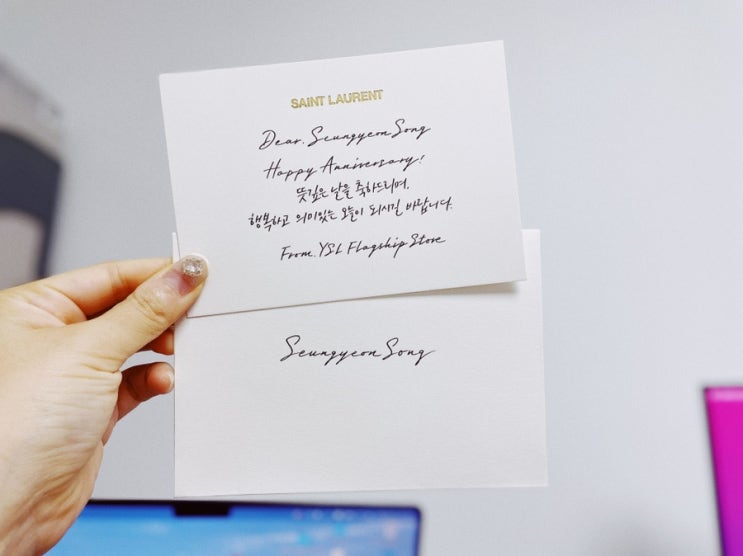 SAINT LAURENT
Dear. Seungyeon Song
Happy Anniversary!
뜻깊은 날을 축하드리며,
행복하고 의미있는 오늘이 되시길 바랍니다.
From. YSL Flagship Store
Seungyeon Song